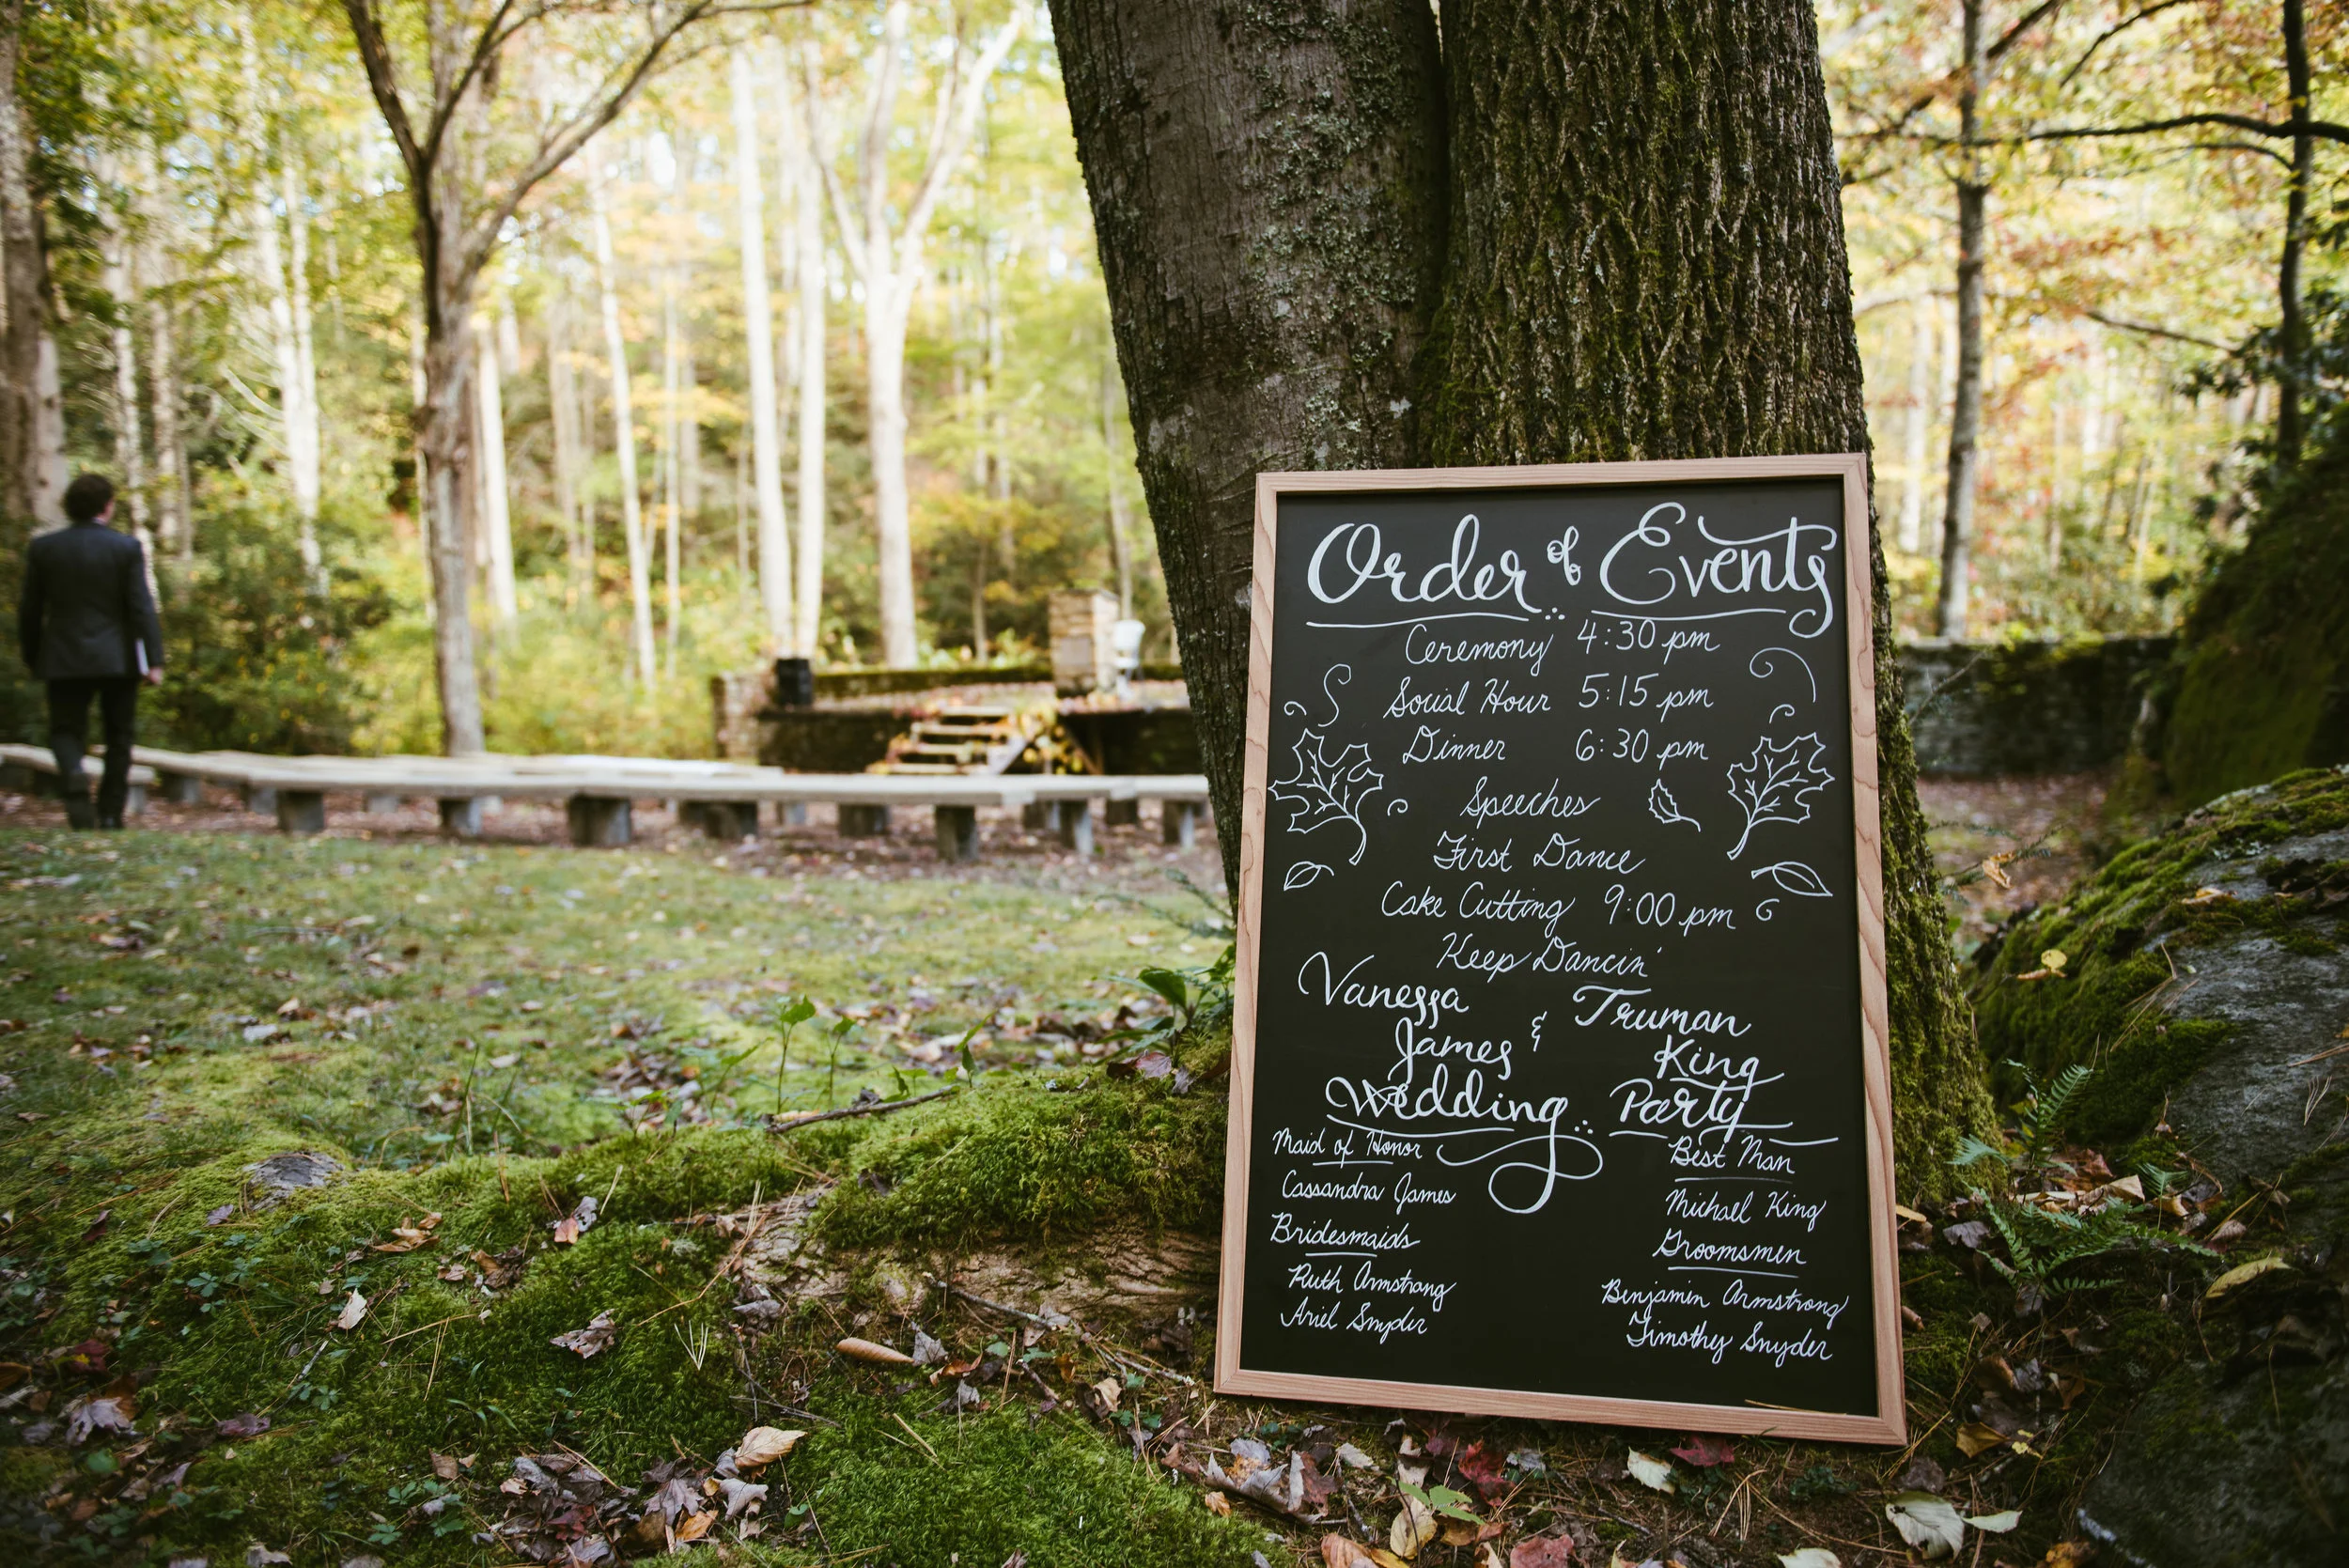 Order of Events
Ceremony 4:30 pm
Social Hour 5:15 pm
Dinner 6:30 pm
Speeches
First Dance
Cake Cutting 9:00 pm
Keep Dancin'
Vanessa James & Truman King
Wedding Party
Maid of Honor
Cassandra James
Bridesmaids
Ruth Armstrong
Ariel Snyder
Best Man
Michael King
Groomsmen
Benjamin Armstrong
Timothy Snyder